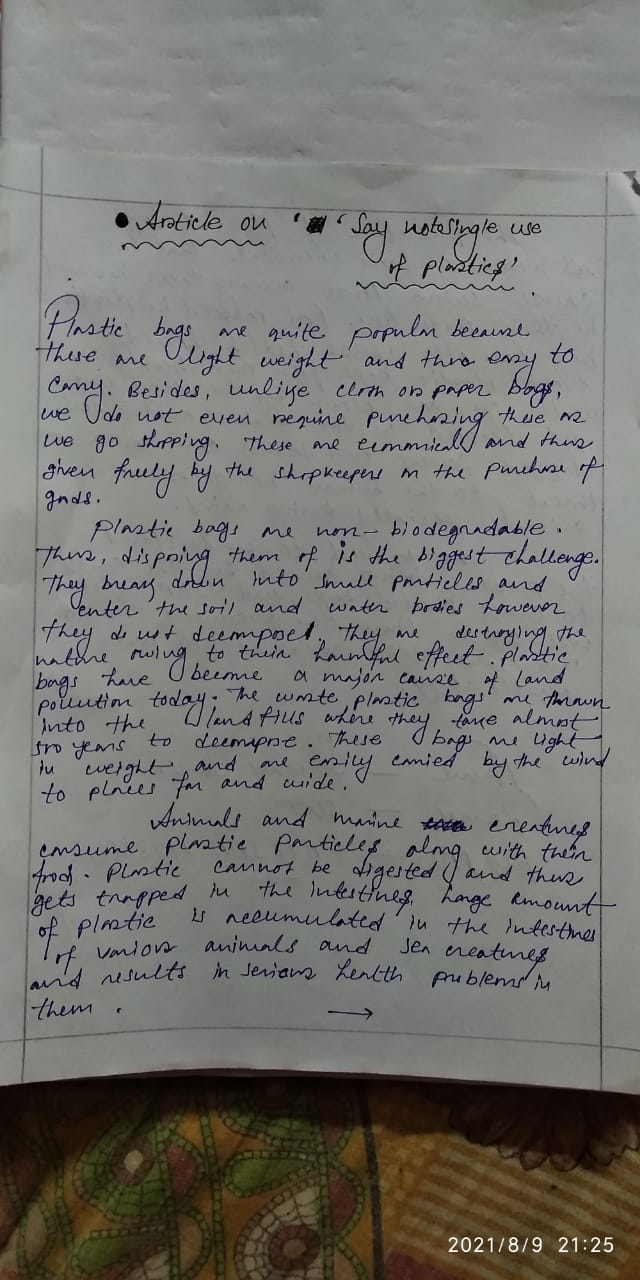 • Article on ' ' Say note single use
of plastics'
Plastic bags are quite popular because
these are light weight and thus easy to
carry. Besides, unlike cloth or paper bags,
we do not even require purchasing these as
we go shopping. These are economical and thus
given freely by the shopkeepers on the purchase of
goods.
Plastic bags are non-biodegradable.
Thus, disposing them of is the biggest challenge.
They break down into small particles and
enter the soil and water bodies however
they do not decomposed. They are destroying the
nature owing to their harmful effect. Plastic
bags have become a major cause of land
pollution today. The waste plastic bags are thrown
into the landfills where they take almost
500 years to decompose. These bags are light
in weight and are easily carried by the wind
to places far and wide.
Animals and marine creatures
consume plastic particles along with their
food. Plastic cannot be digested and thus
gets trapped in the intestines. Large amount
of plastic is accumulated in the intestines
of various animals and sea creatures
and results in serious health problems in
them. →
2021/8/9 21:25